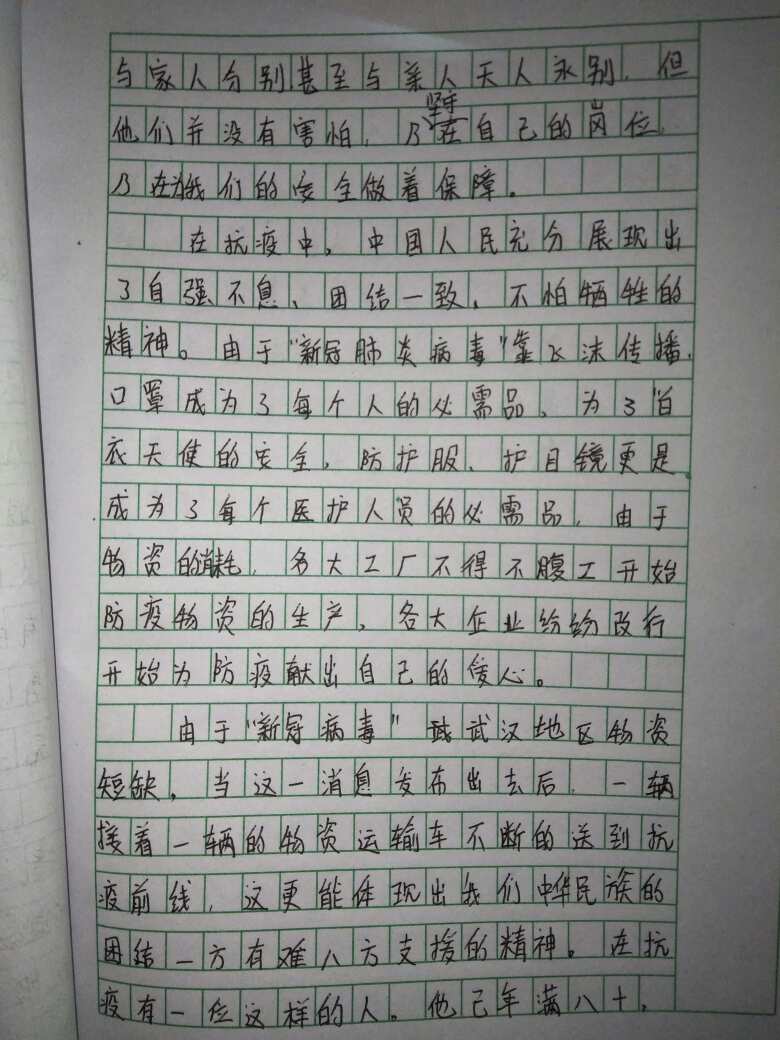 与家人分别甚至与亲人天人永别，但
他们并没有害怕，乃坚守在自己的岗位，
乃在为我们的安全做着保障。
在抗疫中，中国人民充分展现出
了自强不息、团结一致、不怕牺牲的
精神。由于"新冠肺炎病毒"靠飞沫传播，
口罩成为了每个人的必需品，为了"白
衣天使的安全，防护服、护目镜更是
成为了每个医护人员的必需品，由于
物资的消耗，各大工厂不得不腹工开始
防疫物资的生产，各大企业纷纷改行
开始为防疫献出自己的爱心。
由于"新冠病毒"武汉地区物资
短缺，当这一消息发布出去后，一辆
接着一辆的物资运输车不断的送到抗
疫前线，这更能体现出我们中华民族的
团结一方有难八方支援的精神。在抗
疫有一位这样的人。他已年满八十，